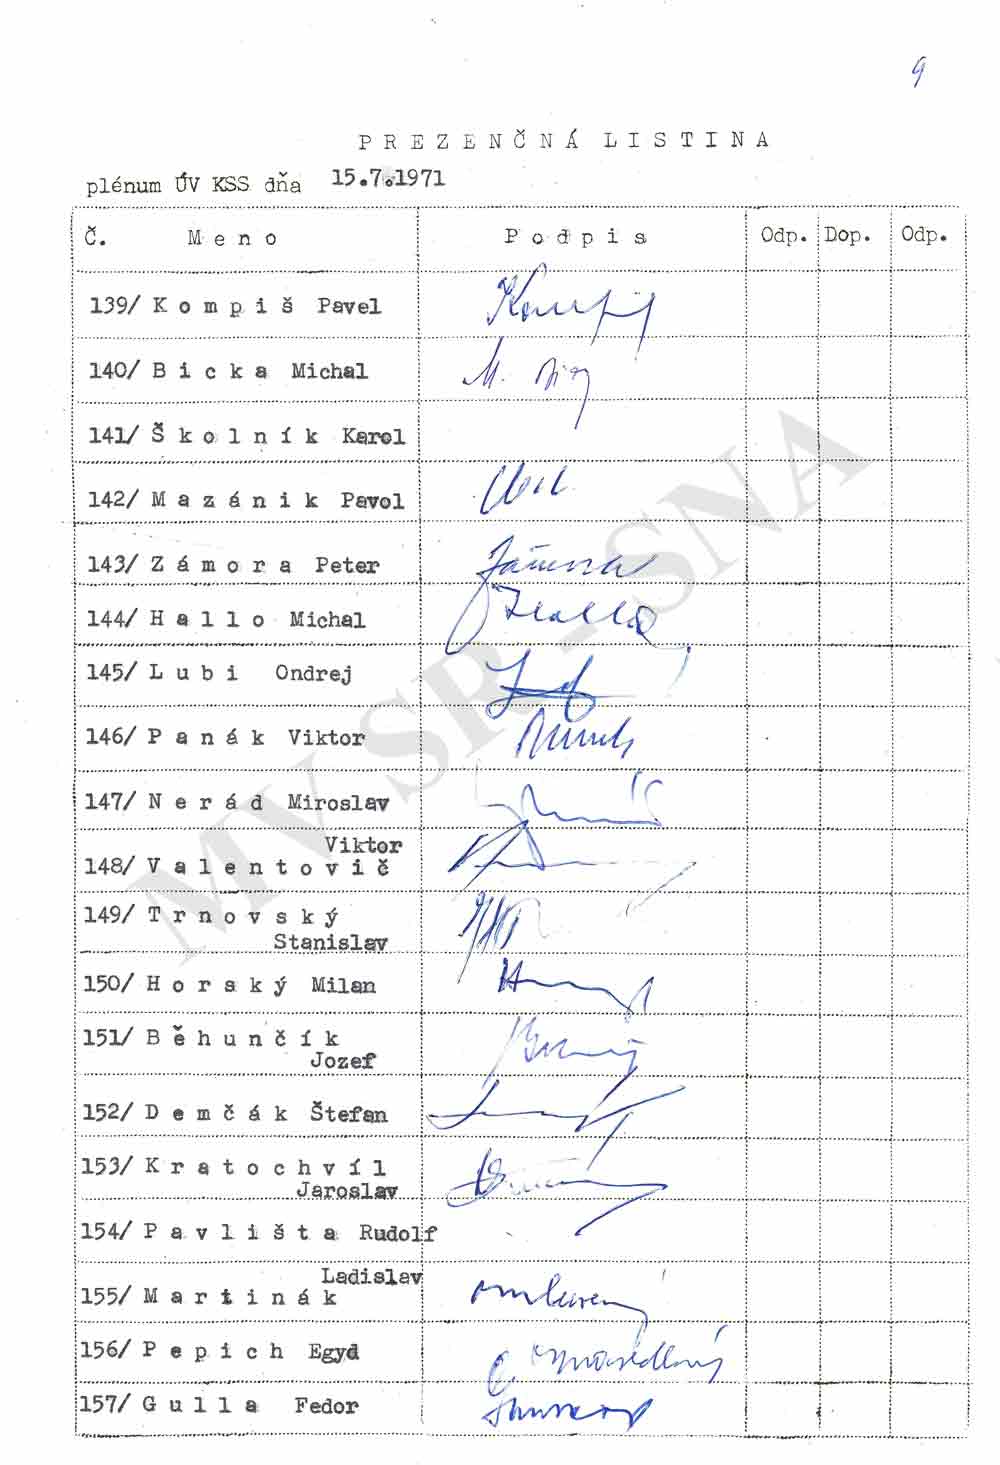 9
PREZENČNÁ LISTINA
plénum ÚV KSS dňa 15.7.1971
Č. Meno Podpis Odp. Dop. Odp.
139/ Kompiš Pavel
140/ Bicka Michal M.
141/ Školník Karol
142/ Mazánik Pavol
143/ Zámora Peter Zámora
144/ Hallo Michal Hallo
145/ Lubi Ondrej
146/ Panák Viktor
147/ Nerád Miroslav
Viktor
148/ Valentovič
149/ Trnovský
Stanislav
150/ Horský Milan
151/ Běhunčík
Jozef
152/ Demčák Štefan
153/ Kratochvíl
Jaroslav
154/ Pavlišta Rudolf
Ladislav
155/ Martinák
156/ Pepich Egyd
157/ Gulla Fedor
MV SR - SNA